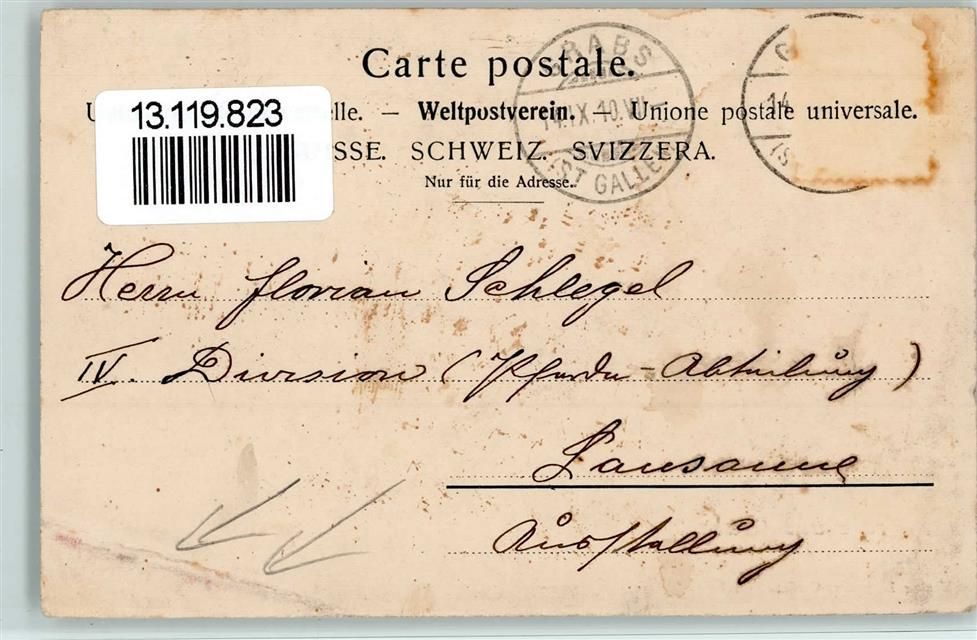 Carte postale.
13.119.823
U elle. — Weltpostverein. — Unione postale universale.
SSE. SCHWEIZ. SVIZZERA.
Nur für die Adresse.
GRABS
14.IX.10.VII
(ST GALLEN)
G
14
(S
Herrn Florian Schlegel
IV. Division (Pferde-Abteilung)
Lausanne
Ausstellung